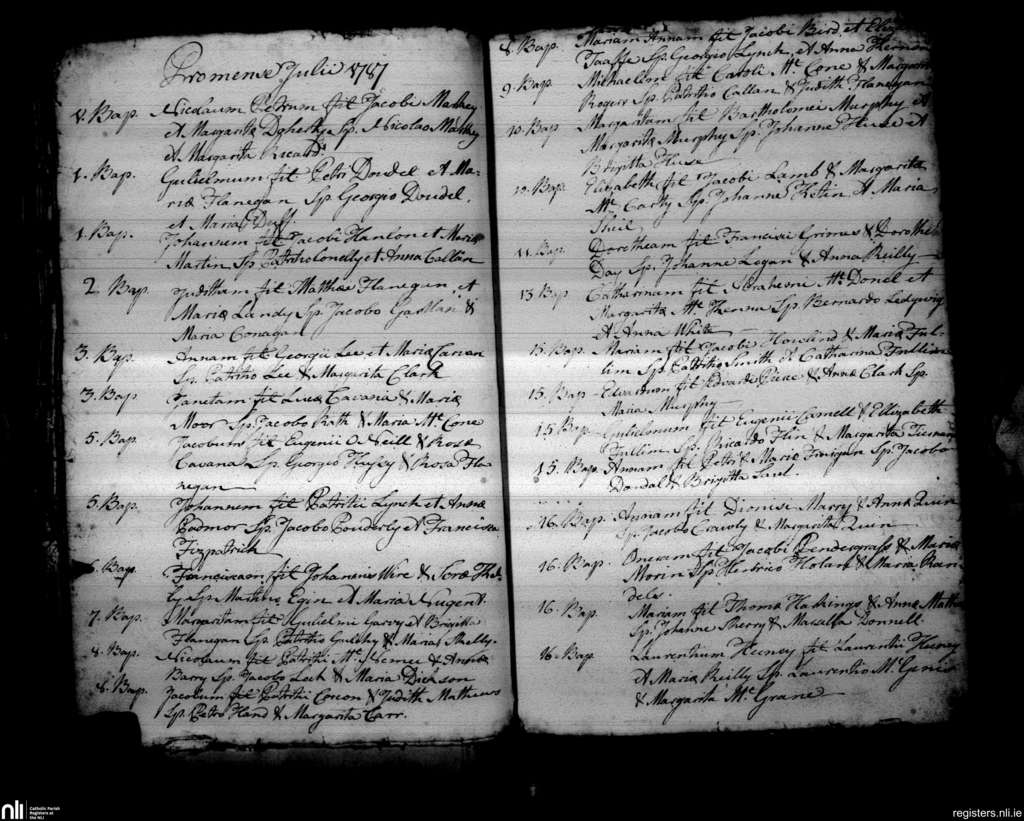 Pro mense Julii 1787
1. Bap. Nicolaum Petrum fil Jacobi Markey
et Margarita Doherty Sp. Nicolao Markey
et Margarita Ricard
1. Bap. Gulielmum fil Petri Doudel et Ma-
riæ Flanegan Sp Georgio Doudel.
et Maria Duff.
1. Bap. Johannem fil Jacobi Hanlon et Mariæ
Martin Sp Patritio Conelly et Anna Callan
2 Bap. Juditham fil Matthæi Flanegan et
Mariæ Landy Sp. Jacobo Gartlan &
Maria Conagan
3. Bap. Annam fil Georgii Lee et Mariæ
Sp. Patritio Lee & Margarita Clark
3. Bap Janetam fil Lucæ Cavana & Mariæ
Moor Sp. Jacobo Rath & Maria Mc. Cone
5. Bap. Jacobum fil Eugenii O Neill & Rosæ
Cavana Sp. Georgio Hussey & Rosa Fla
negan
5. Bap. Johannem fil Patritii Lynch et Annæ
Padmor Sp. Jacobo Ponderly et Francisca
Fizpatrick
6 Bap. Franciscam fil Johannis Wire &
Sp Martino Egin et Maria Nugent.
7. Bap. Margaritam fil Gulielmi Garvey et Brigitta
Flanegan Sp. Patritio & Maria Shelly.
8. Bap. Nicolaum fil Patritii Mc. & Annæ
Barry Sp. Jacobo Lock & Maria Dickson
8. Bap. Jacobum fil Patritii Corcon & Judith Mathews
Sp. Petro Hand & Margarita Carr.
8. Bap. Mariam Annam fil Jacobi Bird et
Taaffe Sp. Georgio Lynch et Anna
9. Bap. Michaelem fil Caroli Mc. Cone & Margarita
Rogers Sp. Patritio Callan & Judith Flanegan
10. Bap Margaritam fil Bartholomei Murphy et
Margaritæ Murphy Sp. Johanne Huse et
Brigitta Huse
10. Bap. Elizabeth fil Jacobi Lamb & Margarita
Mc. Carty Sp. Johanne Kelin et Maria
Shiel
11. Bap. Dorotheam fil Francisci Grimes & Dorothea
Day Sp. Johanne Logan & Anna Reilly
13 Bap Catharinam fil Mc. Donel et
Margaritæ Mc. Sp. Bernardo Ledgwig
et Anna White
15. Bap. Mariam fil Jacobi Howland & Mariæ Ful-
lim Sp. Patritio Smith et Catharina Fullim
15. Bap Edvardum fil Edvardi Pierce & Annæ Clark Sp.
Maria Murphy
15 Bap Gulielmum fil Eugenii Camell & Ellizabeth
Fullim Sp. Ricardo Flin & Margarita
15. Bap. Annam fil Petri & Mariæ Finigan Sp. Jacobo
Doudal & Brigitta
16. Bap. Annam fil Dionisii Marry & Annæ Quin
Sp. Jacobo Crawly & Margarita Quin
16. Bap. fil Jacobi Pendergrass & Mariæ
Morin Sp. Henrico Nolan & Maria Ran
dels.
16. Bap. Mariam fil Thomæ Haskings & Annæ
Sp. Johanne Sherry & Massella Donnell.
16. Bap Laurentium Heeney fil Laurentii Heeney
et Mariæ Reilly Sp. Laurentio Mc. Geniss
& Margarita Mc. Grane
nli
Catholic Parish
Registers at
the NLI
registers.nli.ie